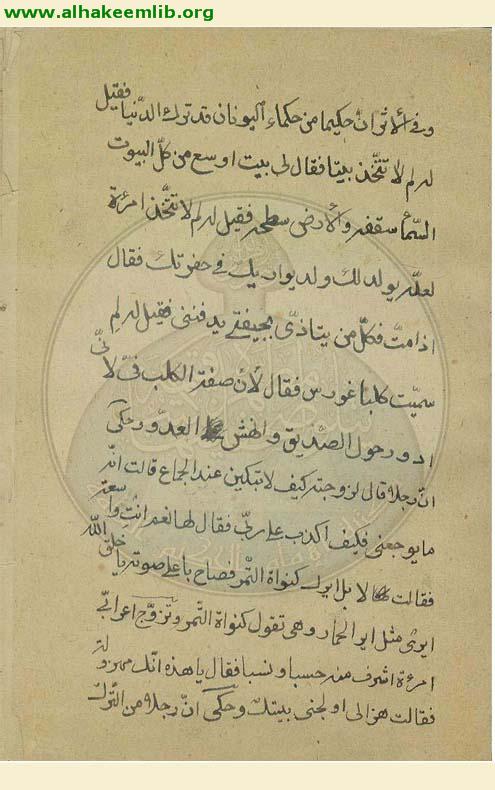 www.alhakeemlib.org
وفي الأثر ان حكيما من حكماء اليونان قد ترك الدنيا فقيل
له لم لا تتّخذ بيتا فقال لي بيت اوسع من كلّ البيوت
السّماء سقفه والأرض سطحه فقيل له لم لا تتّخذ امرءة
لعلّه يولد لك ولد يواريك في حفرتك فقال
اذا متّ فكلّ من يتاذّى بجيفتي يدفنني فقيل له لم
سمّيت كلبا غورس فقال لأنّ صفة الكلب فيّ لانّى
ادور حول الصّديق وانهش العدوّ وحكى
انّ رجلا قال لزوجته كيف لا تبكين عند الجماع قالت انّه
ما يوجعنى فكيف اكذب على ربّي فقال لها نعم انتِ واسعة
فقالت لا بل ايرك كنواة التّمر فصاح باعلى صوته يا خلق اللّه
ايرى مثل اير الحمار وهي تقول كنواة التّمر وتزوّج اعرابيّ
امرءة اشرف منه حسبا ونسبا فقال يا هذه انّك مهزولة
فقالت هزالى اولجنى بيتك وحكى انّ رجلا من التّرك